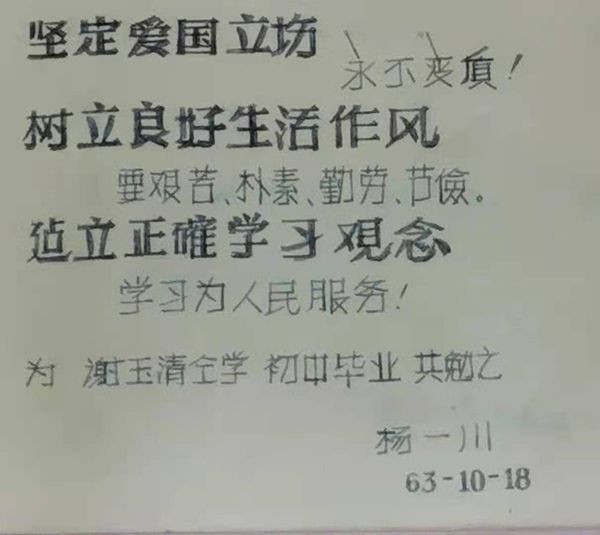 坚定爱国立场
永不变质！
树立良好生活作风
要艰苦、朴素、勤劳、节儉。
建立正確学习观念
学习为人民服务！
为 谢玉清仝学 初中毕业 共勉之
杨一川
63-10-18